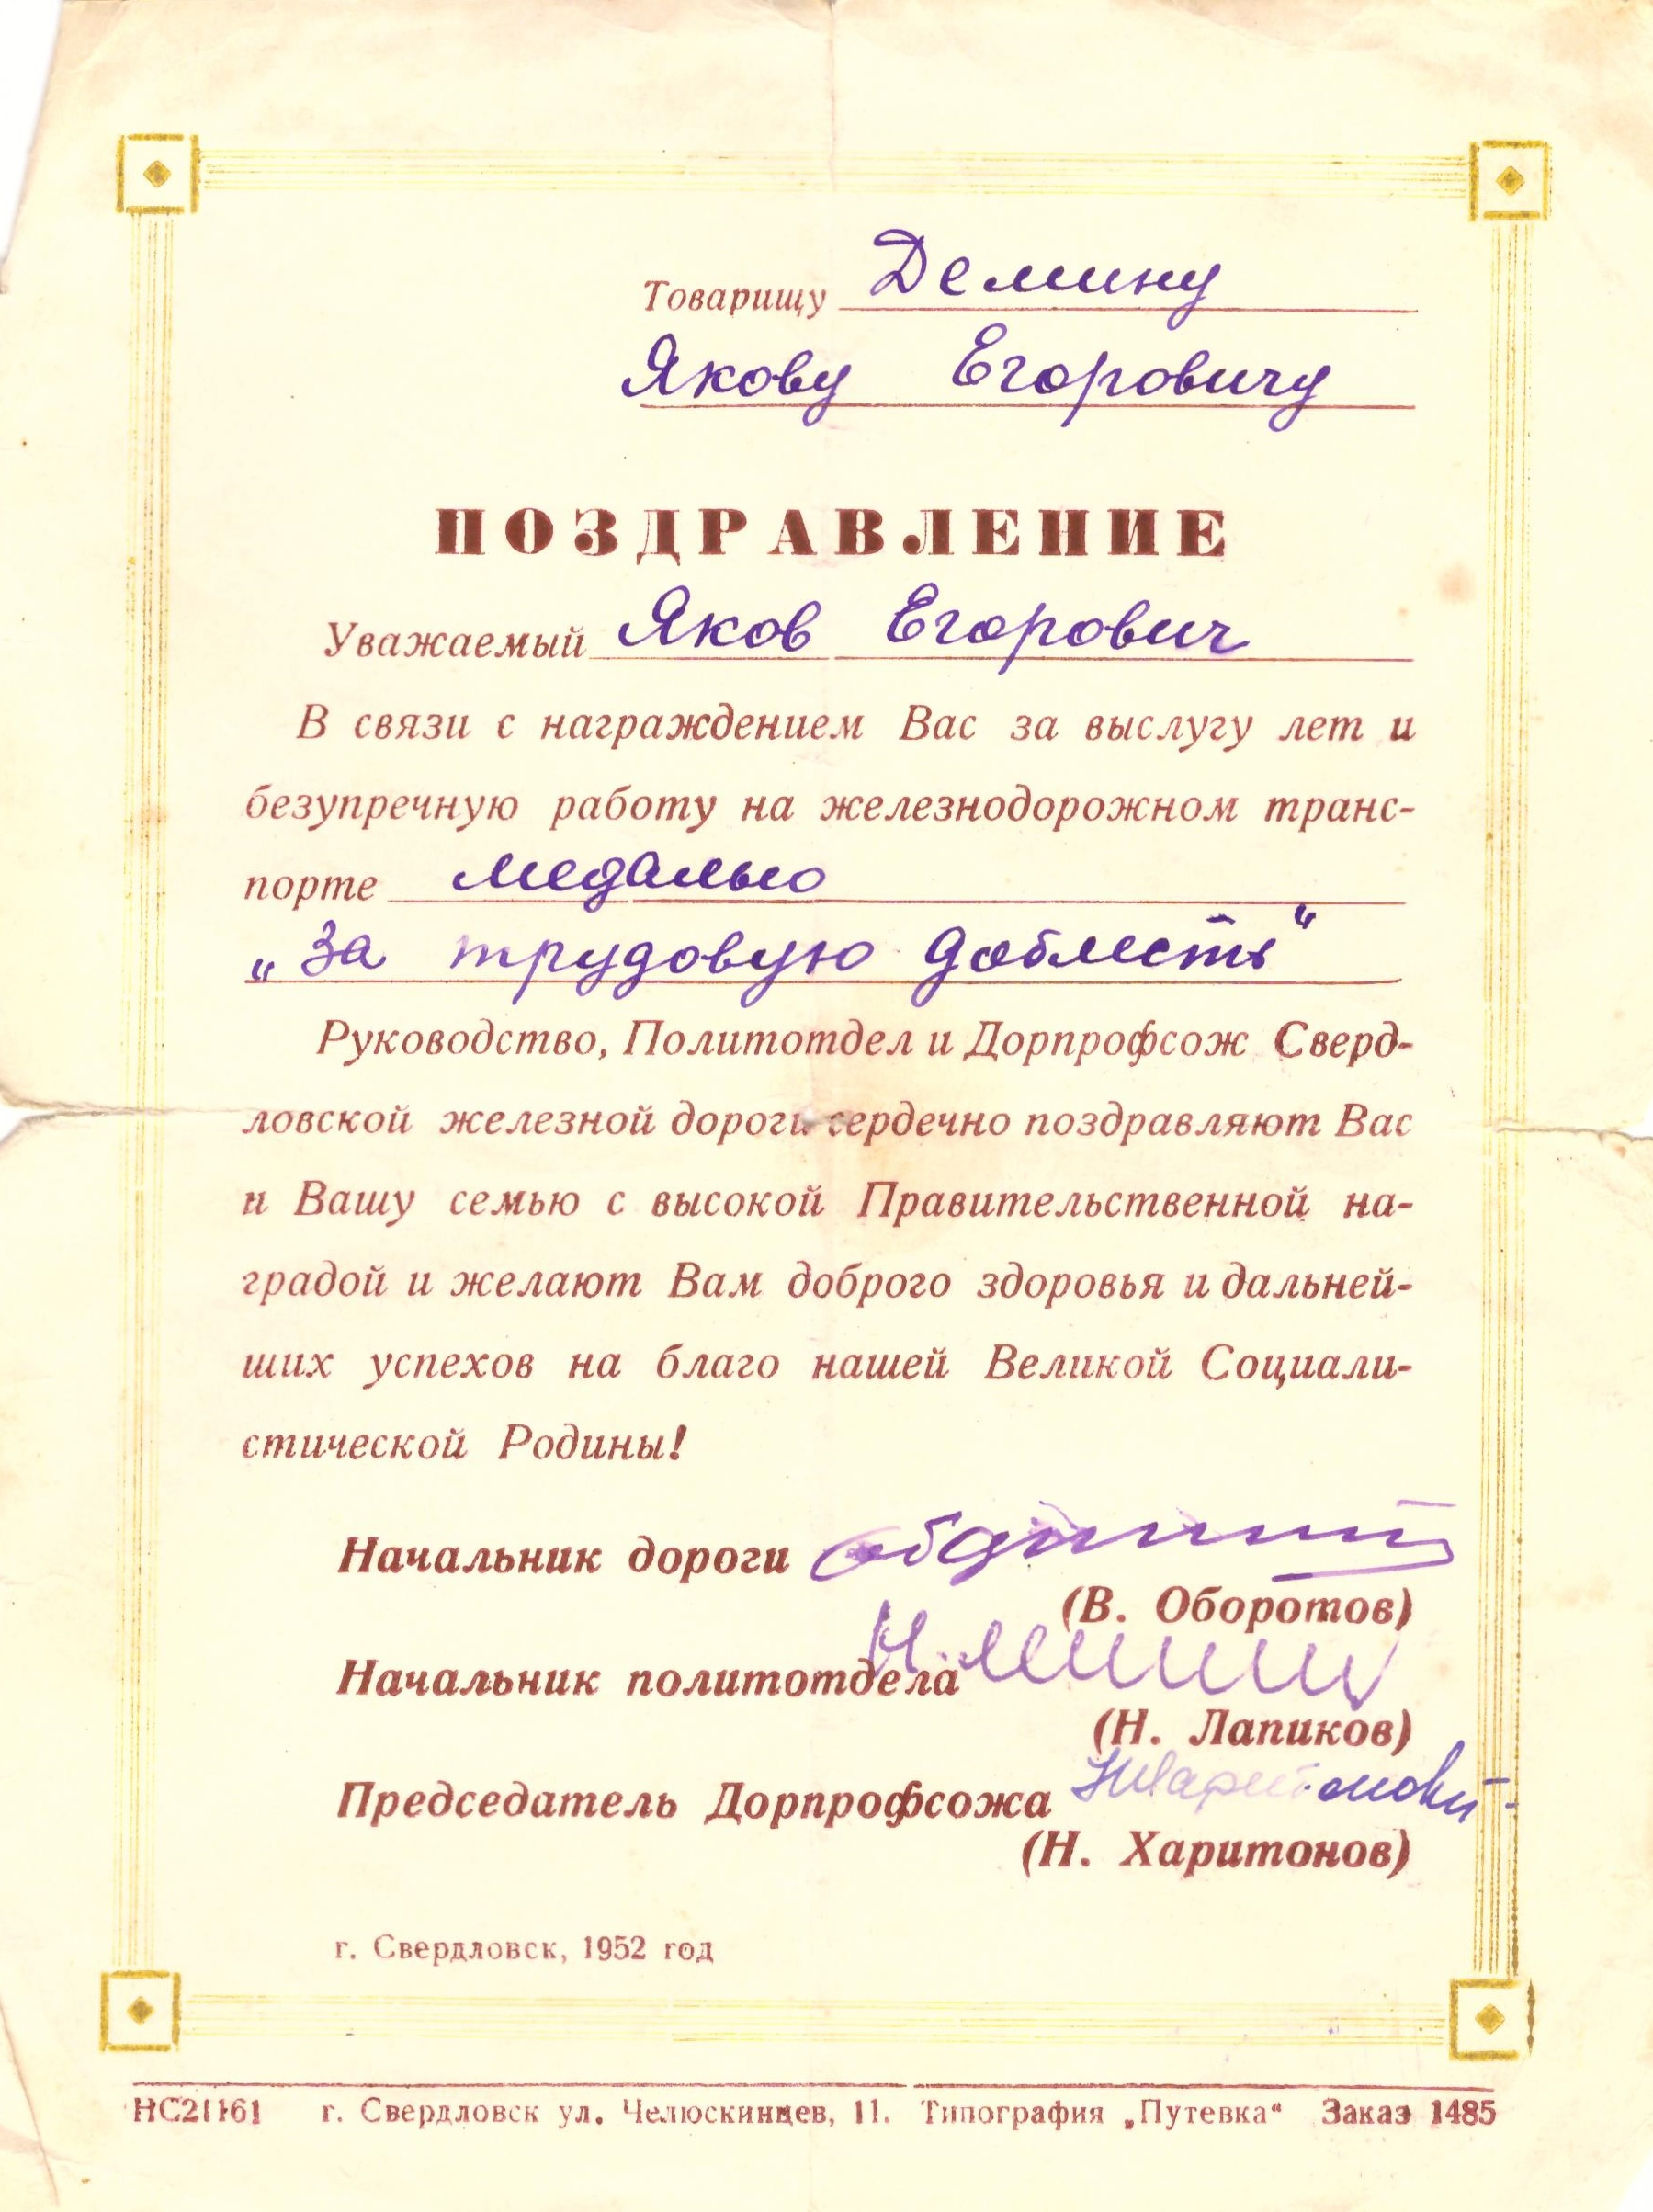 Товарищу Демину
Якову Егоровичу
ПОЗДРАВЛЕНИЕ
Уважаемый Яков Егорович
В связи с награждением Вас за выслугу лет и
безупречную работу на железнодорожном транс-
порте медалью
„За трудовую доблесть“
Руководство, Политотдел и Дорпрофсож Сверд-
ловской железной дороги сердечно поздравляют Вас
и Вашу семью с высокой Правительственной на-
градой и желают Вам доброго здоровья и дальней-
ших успехов на благо нашей Великой Социали-
стической Родины!
Начальник дороги
(В. Оборотов)
Начальник политотдела
(Н. Лапиков)
Председатель Дорпрофсожа
(Н. Харитонов)
г. Свердловск, 1952 год
г. Свердловск ул. Челюскинцев, 11. Типография „Путевка“ Заказ 1485